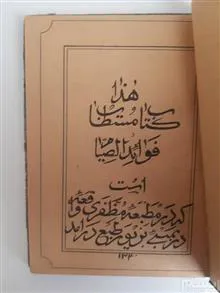 هذا
کتاب مستطاب
فوائد الصیام
است
که در مطبعهٔ مظفری واقعهٔ
در بمبئی بزیور طبع در آمد